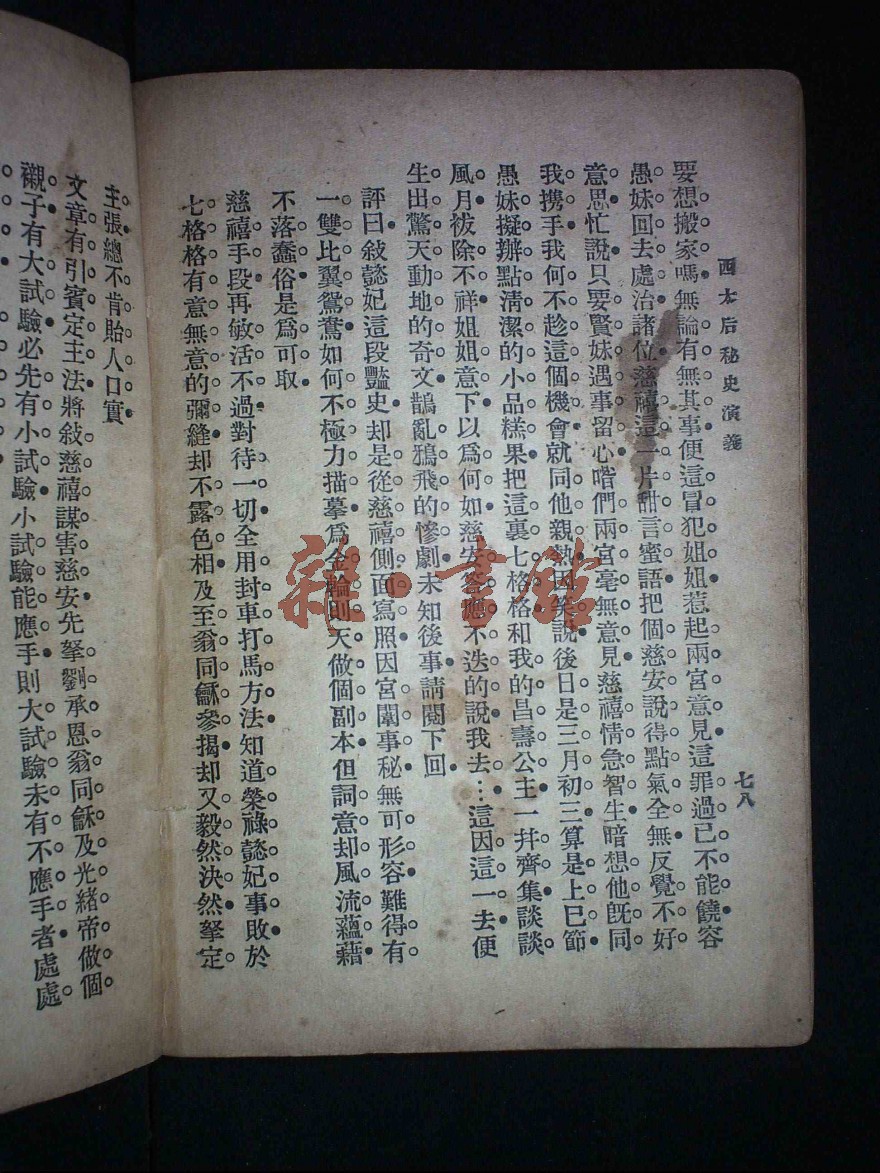 西太后秘史演義
七八
要想搬家嗎無論有無其事便這冒犯姐姐惹起兩宮意見這罪過已不能饒容
愚妹回去處治諸位慈禧這一片甜言蜜語把個慈安說得點氣全無反覺不好
意思忙說只要賢妹遇事留心喒們兩宮毫無意見慈禧情急智生暗想他既同
我攜手我何不趁這個機會就同他親熱因笑說後日是三月初三算是上巳節
愚妹擬辦點清潔的小品糕果把這裏七格格和我的昌壽公主一幷齊集談談
風月祓除不祥姐姐意下以爲何如慈安答應不迭的說我去…這因這一去便
生出驚天動地的奇文鵲亂鴉飛的慘劇未知後事請閱下回
評曰敍懿妃這段豔史却是從慈禧側面寫照因宮闈事秘無可形容難得有
一雙比翼鴛鴦如何不極力描摹爲金輪則天做個副本但詞意却風流蘊藉
不落蠢俗是爲可取
慈禧手段再敏活不過對待一切全用封車打馬方法知道榮祿懿妃事敗於
七格格有意無意的彌縫却不露色相及至翁同龢參揭却又毅然決然拏定
主張總不肯貽人口實
文章有引賓定主法將敍慈禧謀害慈安先拏劉承恩翁同龢及光緒帝做個
襯子有大試驗必先有小試驗小試驗能應手則大試驗未有不應手者處處
雜·書館